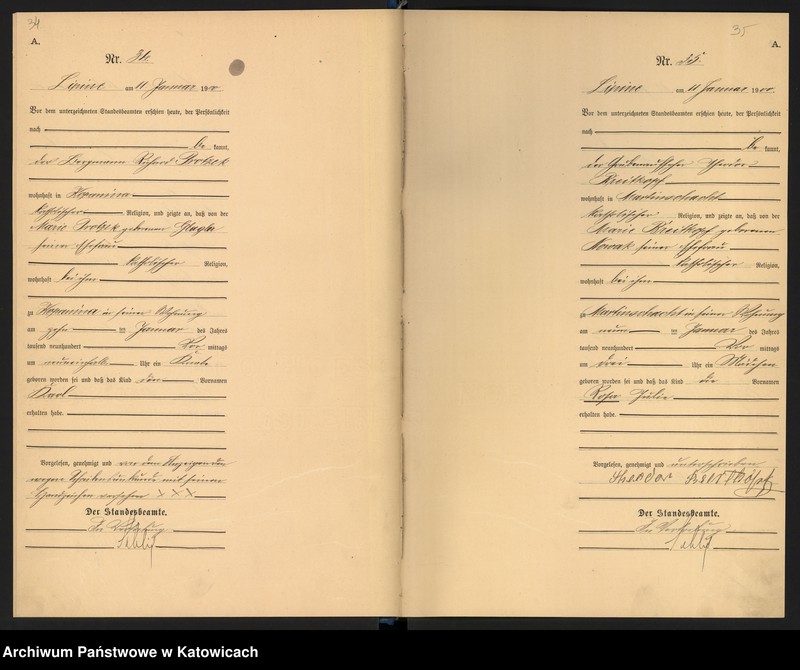 34
A.
Nr. 34.
Lipine am 11 Januar 1900
Vor dem unterzeichneten Standesbeamten erschien heute, der Persönlichkeit
nach
be kannt,
der Bergmann Richard Protzek
wohnhaft in Kopanina
katholischer Religion, und zeigte an, daß von der
Marie Protzek geborenen
seiner Ehefrau
katholischer Religion,
wohnhaft bei ihm
zu Kopanina in seiner Wohnung
am zehn ten Januar des Jahres
tausend neunhundert Vor mittags
um neuneinhalb Uhr ein Knabe
geboren worden sei und daß das Kind den Vornamen
Karl
erhalten habe.
Vorgelesen, genehmigt und von dem Anzeigenden
wegen Schreibunkunde mit seinem
Handzeichen versehen XXX
Der Standesbeamte.
In Vertretung
35
A.
Nr. 35.
Lipine am 11 Januar 1900.
Vor dem unterzeichneten Standesbeamten erschien heute, der Persönlichkeit
nach
be kannt,
der Grubenmaschinist Theodor
Breitkopf
wohnhaft in Martinschacht
katholischer Religion, und zeigte an, daß von der
Marie Breitkopf geborenen
Nowak seiner Ehefrau
katholischer Religion,
wohnhaft bei ihm
zu Martinschacht in seiner Wohnung
am neun ten Januar des Jahres
tausend neunhundert Vor mittags
um drei Uhr ein Mädchen
geboren worden sei und daß das Kind die Vornamen
Rosa Julie
erhalten habe.
Vorgelesen, genehmigt und unterschrieben
Theodor Breitkopf
Der Standesbeamte.
In Vertretung
Archiwum Państwowe w Katowicach